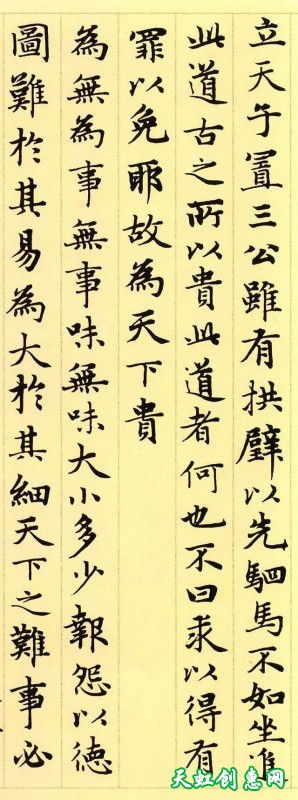 立天子置三公雖有拱璧以先駟馬不如坐進
此道古之所以貴此道者何也不曰求以得有
罪以免耶故為天下貴
為無為事無事味無味大小多少報怨以德
圖難於其易為大於其細天下之難事必
天虹创惠网